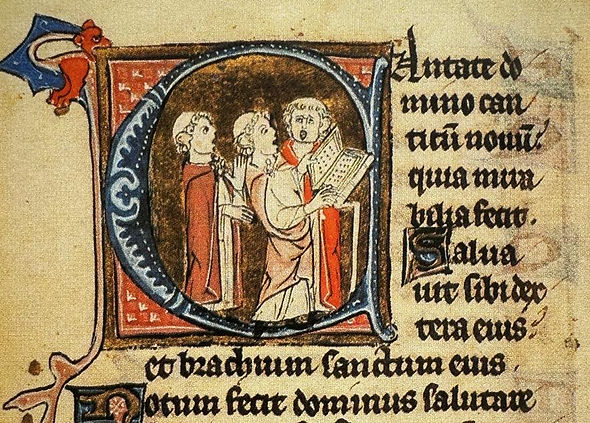 CAntate do
mino can
ticū nouū:
quia mira
bilia fecit.
Salua
uit sibi dex
tera eius:
et brachium sanctum eius.
Notum fecit dominus salutare